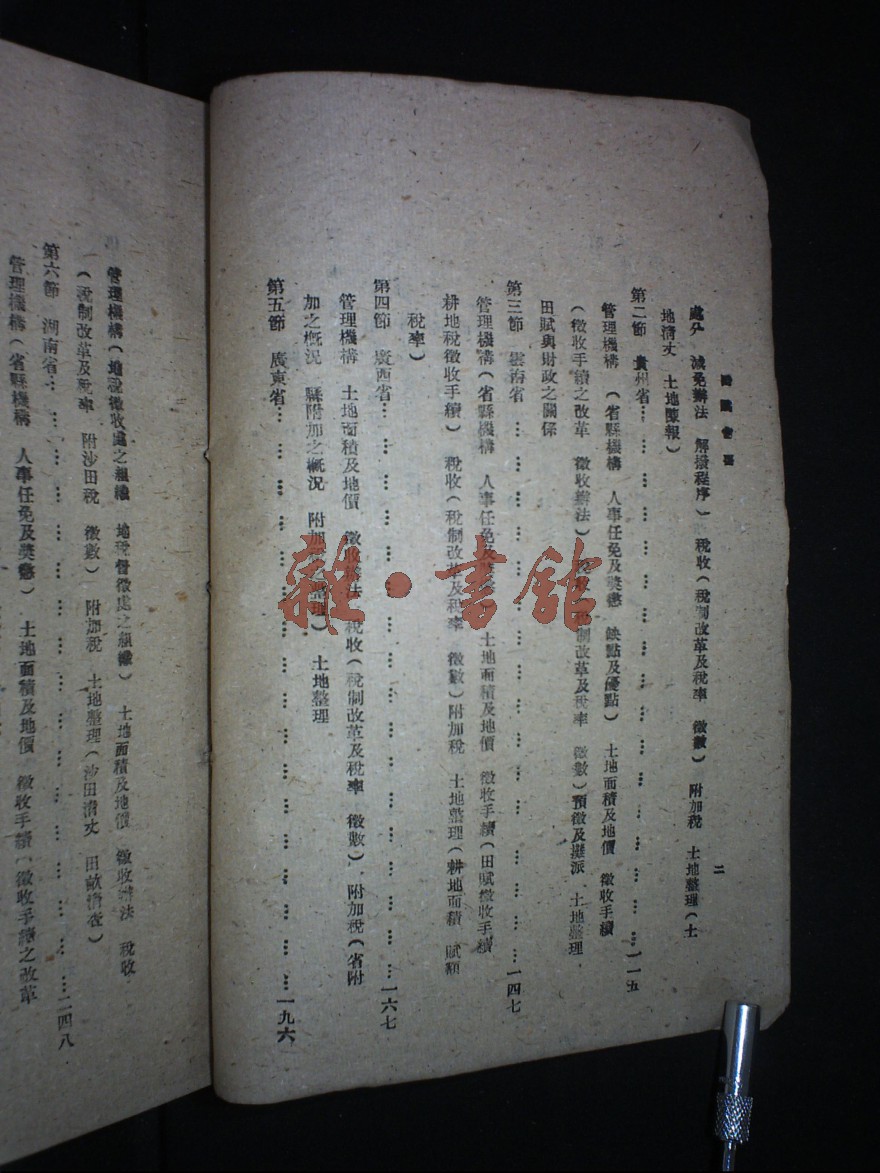 二
處分 減免辦法 解撥程序) 稅收(稅制改革及稅率 徵數) 附加稅 土地整理(土
地清丈 土地陳報)
第二節 貴州省………………………………一一五
管理機構 (省縣機構 人事任免及獎懲 缺點及優點) 土地面積及地價 徵收手續
(徵收手續之改革 徵收辦法) 稅收(稅制改革及稅率 徵數)預徵及攤派 土地整理
田賦與財政之關係
第三節 雲南省………………………………一四七
管理機構(省縣機構 人事任免及獎懲) 土地面積及地價 徵收手續(田賦徵收手續
耕地稅徵收手續) 稅收(稅制改革及稅率 徵數)附加稅 土地整理(耕地面積 賦額
稅率)
第四節 廣西省………………………………一六七
管理機構 土地面積及地價 徵收辦法 稅收(稅制改革及稅率 徵數) 附加稅(省附
加之概況 縣附加之概況 附加 之整理) 土地整理
第五節 廣東省………………………………一九六
管理機構(地稅徵收處之組織 地稅督徵處之組織) 土地面積及地價 徵收辦法 稅收
(稅制改革及稅率 附沙田稅 徵數) 附加稅 土地整理(沙田清丈 田畝清查)
第六節 湖南省………………………………二四八
管理機構(省縣機構 人事任免及獎懲) 土地面積及地價 徵收手續(徵收手續之改革
雜·書館